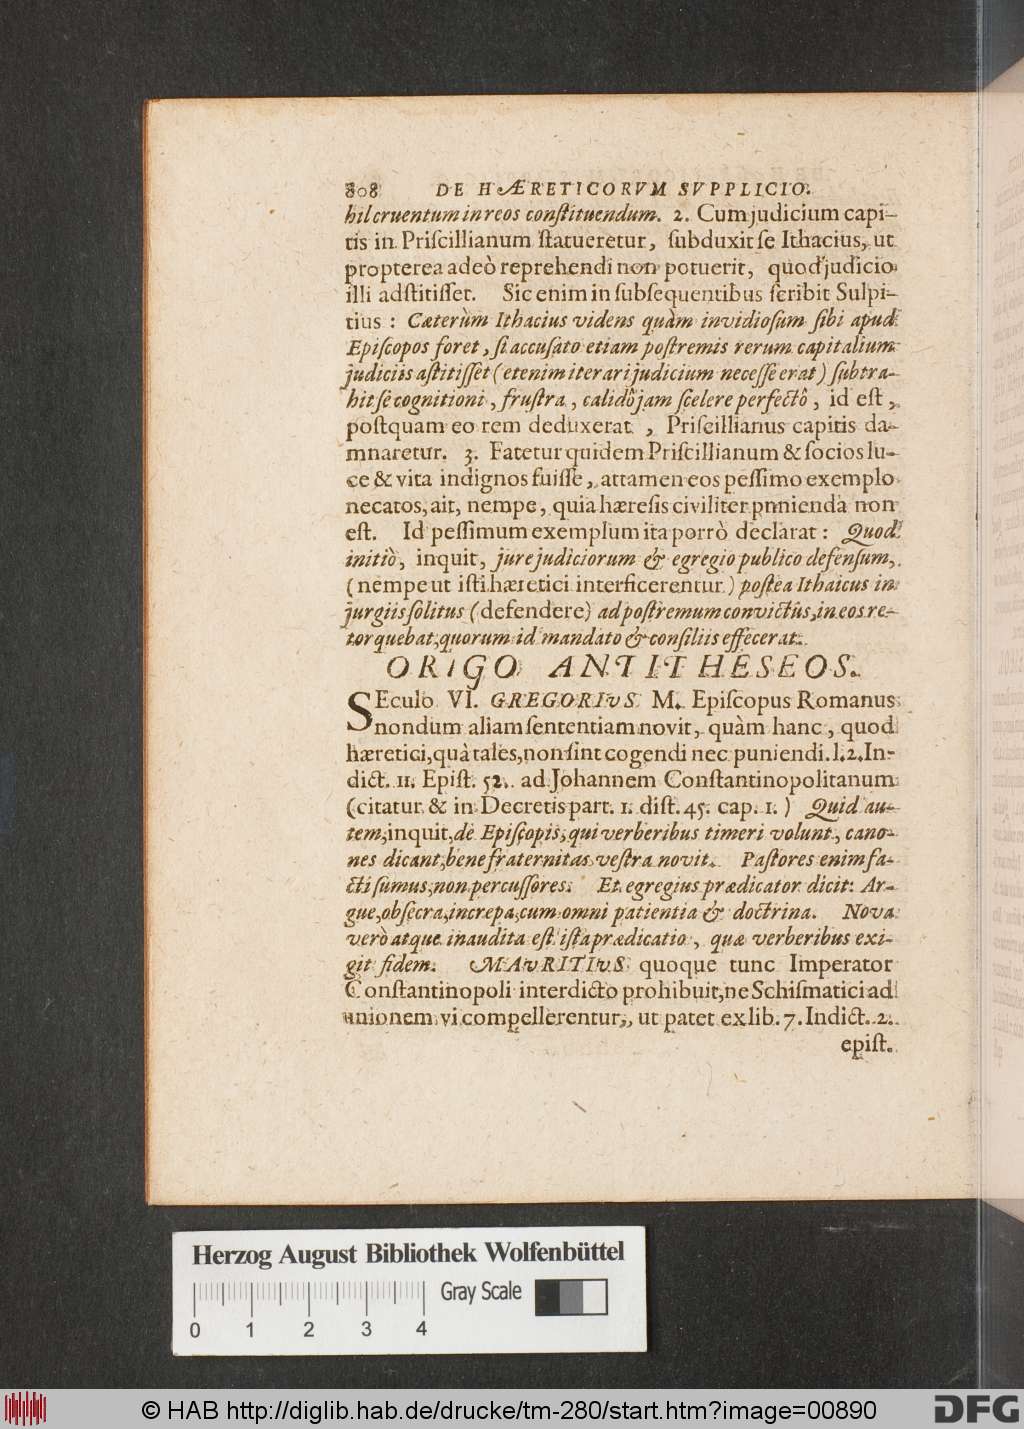 808 DE HÆRETICORVM SVPPLICIO.
hil cruentum in reos conſtituendum. 2. Cum judicium capi-
tis in Priſcillianum ſtatueretur, ſubduxit ſe Ithacius, ut
propterea adeò reprehendi non potuerit, quod judicio
illi adſtitiſſet. Sic enim in ſubſequentibus ſcribit Sulpi-
tius: Cæterùm Ithacius videns quàm invidioſum ſibi apud
Epiſcopos foret, ſi accuſato etiam poſtremis rerum capitalium
judiciis aſtitiſſet (etenim iterari judicium neceſſe erat) ſubtra-
hit ſe cognitioni, fruſtra, calidò jam ſcelere perfectô, id eſt,
poſtquam eo rem deduxerat, Priſcillianus capitis da-
mnaretur. 3. Fatetur quidem Priſcillianum & ſocios lu-
ce & vita indignos fuiſſe, attamen eos peſſimo exemplo
necatos, ait, nempe, quia hæreſis civiliter pnnienda non
eſt. Id peſſimum exemplum ita porrò declarat: Quod
initiò, inquit, jure judiciorum & egregio publico defenſum,
(nempe ut iſti hæretici interficerentur) poſtea Ithaicus in
jurgiis ſolitus (defendere) ad poſtremum convictûs, in eos re-
torquebat, quorum id mandato & conſiliis effecerat.
ORIGO ANTITHESEOS.
SEculo VI. GREGORIVS M. Epiſcopus Romanus
nondum aliam ſententiam novit, quàm hanc, quod
hæretici, quà tales, non ſint cogendi nec puniendi. l. 2. In-
dict. 11. Epiſt. 52. ad Johannem Conſtantinopolitanum
(citatur & in Decretis part. 1. diſt. 45. cap. 1.) Quid au-
tem, inquit, de Epiſcopis, qui verberibus timeri volunt, cano-
nes dicant, bene fraternitas veſtra novit. Paſtores enim fa-
cti ſumus, non percuſſores. Et egregius prædicator dicit: Ar-
gue, obſecra, increpa, cum omni patientia & doctrina. Nova
verò atque inaudita eſt iſta prædicatio, quæ verberibus exi-
git fidem. MAVRITIVS quoque tunc Imperator
Conſtantinopoli interdicto prohibuit, ne Schiſmatici ad
unionem vi compellerentur, ut patet ex lib. 7. Indict. 2.
epiſt.
Herzog August Bibliothek Wolfenbüttel
Gray Scale
0 1 2 3 4
© HAB http://diglib.hab.de/drucke/tm-280/start.htm?image=00890
DFG